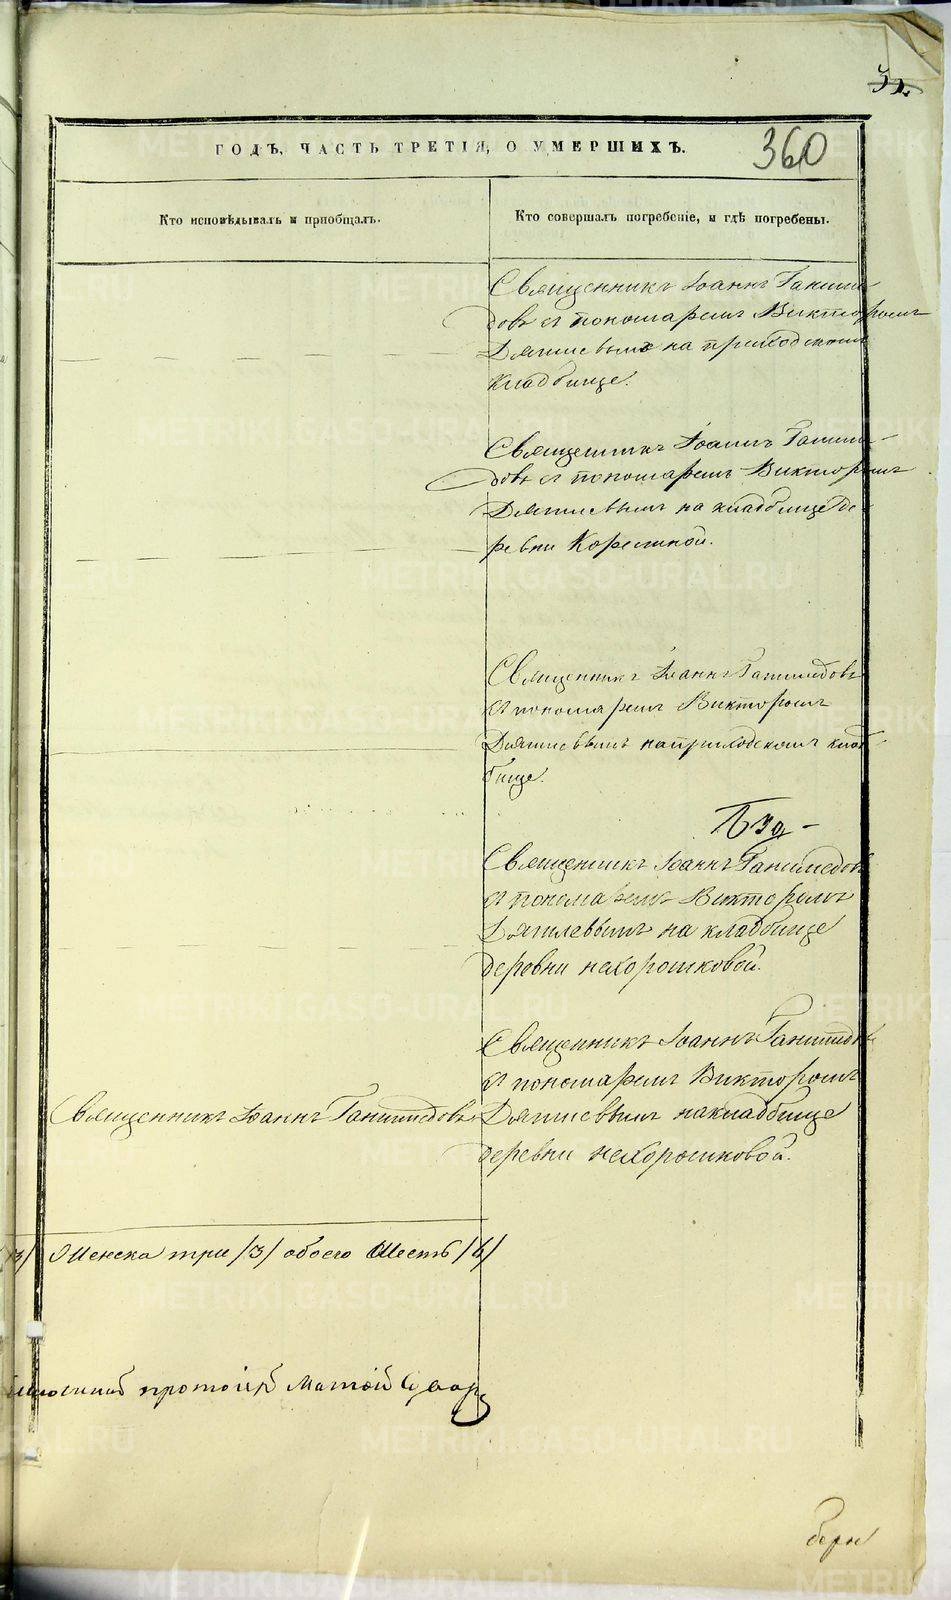 360
ГОДЪ, ЧАСТЬ ТРЕТІЯ, О УМЕРШИХЪ.
Кто исповѣдывалъ и пріобщалъ.
Кто совершалъ погребеніе, и гдѣ погребены.
Священникъ Іоаннъ Ганиме-
довъ съ пономаремъ Викторомъ
Дягилевымъ на приходскомъ
кладбище.
Священникъ Іоаннъ Ганиме-
довъ съ пономаремъ Викторомъ
Дягилевымъ на кладбище де-
ревни Корелиной.
Священникъ Іоаннъ Ганимедовъ
съ пономаремъ Викторомъ
Дягилевымъ на приходскомъ клад-
бище.
Священникъ Іоаннъ Ганимедовъ
съ пономаремъ Викторомъ
Дягилевымъ на кладбище
деревни нехорошковой.
Священникъ Іоаннъ Ганимедовъ
Священникъ Іоаннъ Ганимедовъ
съ пономаремъ Викторомъ
Дягилевымъ на кладбище
деревни нехорошковой.
/3/ Женска три /3/ обоего Шесть /6/
протоіерей
METRIKI.GASO-URAL.RU